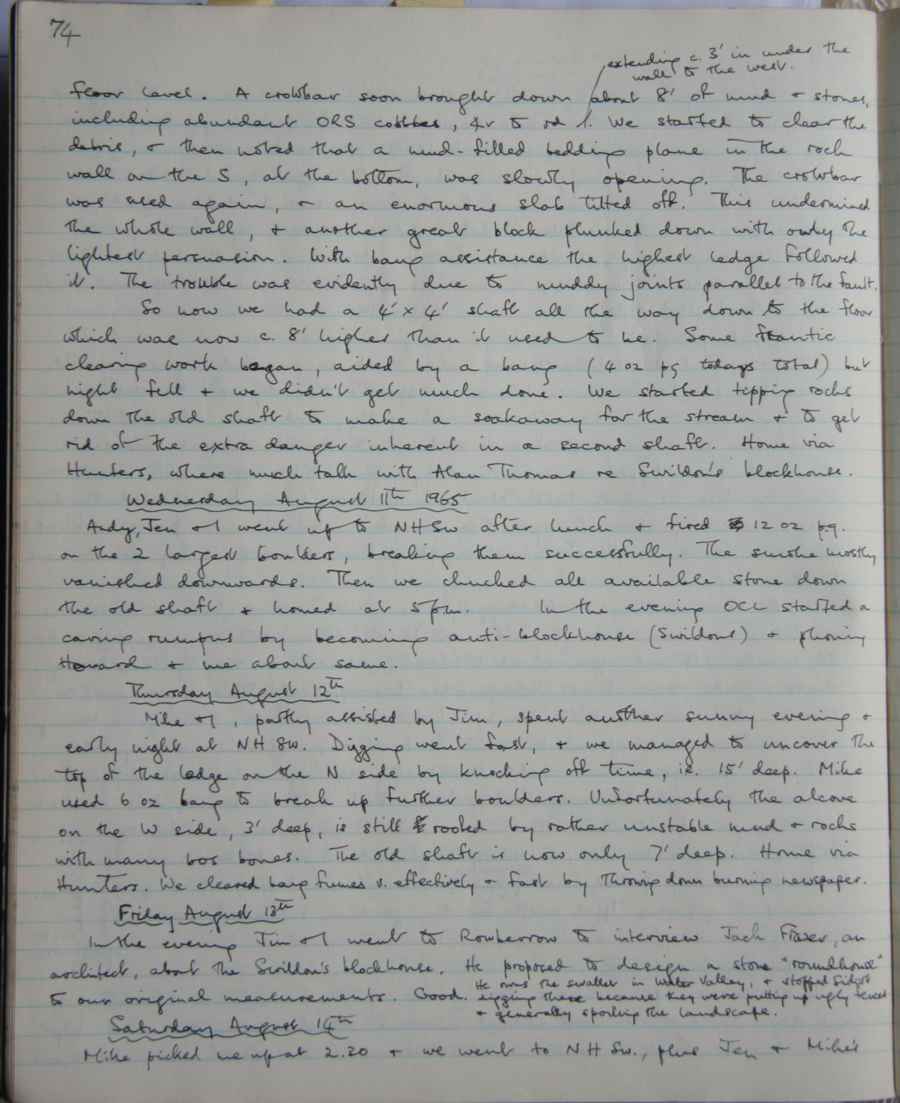 74
extending c. 3' in under the
wall to the west.
floor level. A crowbar soon brought down about 8' of mud + stones,
including abundant ORS cobbles, 4" to 2d 1. We started to clear the
debris, + then noted that a mud-filled bedding plane in the rock
wall on the S, at the bottom, was slowly opening. The crowbar
was used again, + an enormous slab tilted off. This undermined
the whole wall, + another great block plunked down with only the
lightest persuasion. With bang assistance the highest ledge followed
it. The trouble was evidently due to muddy joints parallel to the fault.
So now we had a 4' x 4' shaft all the way down to the floor
which was now c. 8' higher than it used to be. Some frantic
clearing work began, aided by a bang (4 oz pg todays total) but
night fell + we didn't get much done. We started tipping rocks
down the old shaft to make a soakaway for the stream + to get
rid of the extra danger inherent in a second shaft. Home via
Hunters, where much talk with Alan Thomas re Swildon's blockhouse.
Wednesday August 11th 1965
Andy, Jen + I went up to NHSw after lunch + fired 12 oz p.g.
on the 2 largest boulders, breaking them successfully. The smoke mostly
vanished downwards. Then we chucked all available stone down
the old shaft + homed at 5pm. In the evening OCL started a
caving rumpus by becoming anti-blockhouse (Swildons) + phoning
Howard + me about same.
Thursday August 12th
Mike + I, partly assisted by Jim, spent another sunny evening +
early night at NH Sw. Digging went fast, + we managed to uncover the
top of the ledge on the N side by knocking off time, i.e. 15' deep. Mike
used 6 oz bang to break up further boulders. Unfortunately the alcove
on the W side, 3' deep, is still roofed by rather unstable mud + rocks
with many bos bones. The old shaft is now only 7' deep. Home via
Hunters. We cleared bang fumes v. effectively + fast by throwing down burning newspaper.
Friday August 13th
In the evening Jim + I went to Rowberrow to interview Jack Fraser, an
architect, about the Swildon's blockhouse. He proposed to design a stone "roundhouse"
to our original measurements. Good. He owns the swallet in Water Valley, + stopped Sidcot
digging there because they were putting up ugly fences
+ generally spoiling the landscape.
Saturday August 14th
Mike picked me up at 2.20 + we went to NH Sw., plus Jen + Mike's